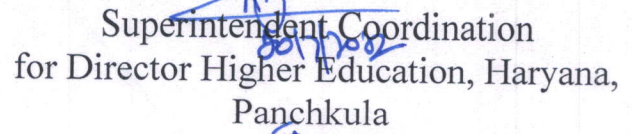 Superintendent Coordination
for Director Higher Education, Haryana,
Panchkula